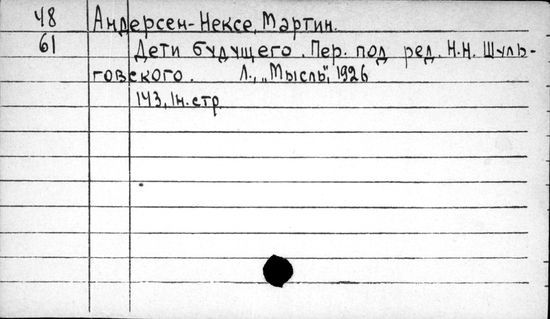 48 Андерсен-Нексе, Мартин.
61 Дети будущего. Пер. под ред. Н.Н. Шуль-
говского. Л., „Мысль", 1926
143, 1н. стр.